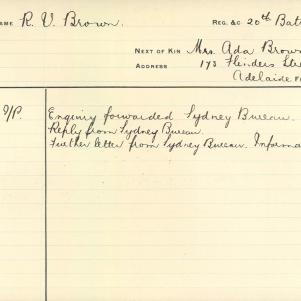 NAME R. V. Brown. REG. &C 20th Bat
NEXT OF KIN Mrs. Ada Brown
ADDRESS 173 Flinders Stre
Adelaide
I/P. Enquiry forwarded Sydney Bureau.
Reply from Sydney Bureau.
Further letter from Sydney Bureau. Informa